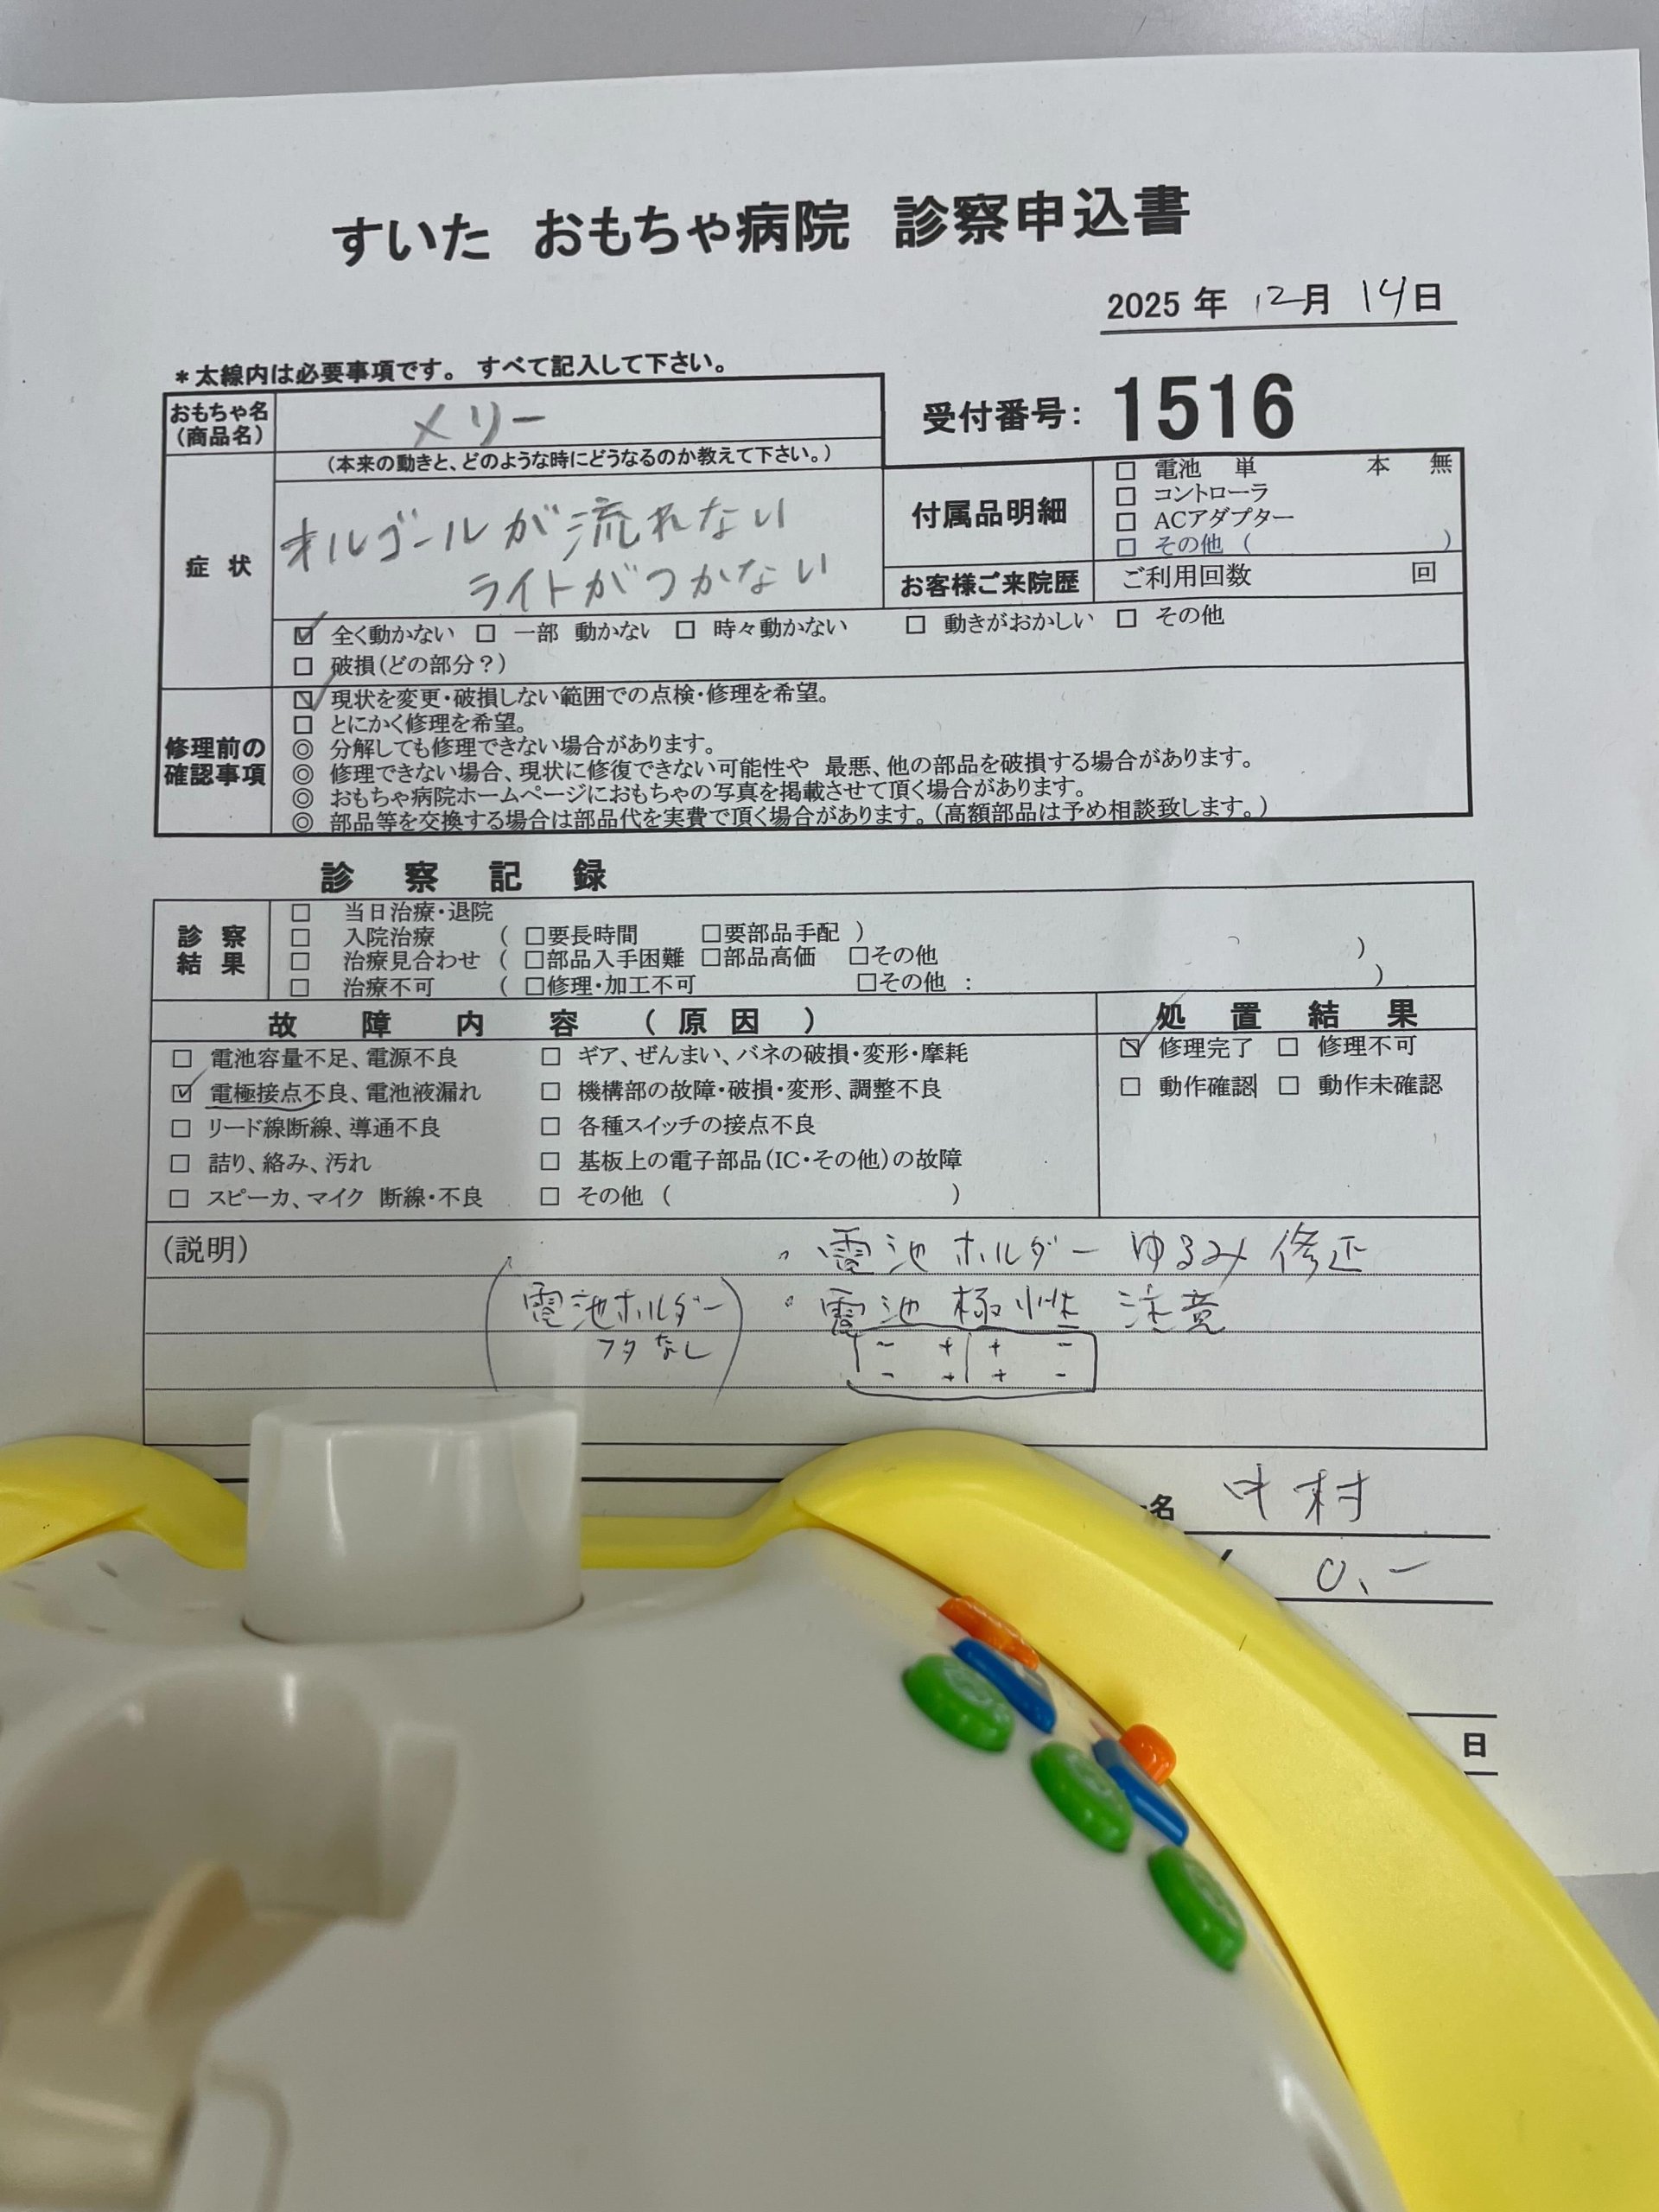 すいた おもちゃ病院 診察申込書
2025 年 12月 14日
*太線内は必要事項です。 すべて記入して下さい。
受付番号: 1516
おもちゃ名
(商品名)
メリー
症 状
(本来の動きと、どのような時にどうなるのか教えて下さい。)
オルゴールが流れない
ライトがつかない
付属品明細
□ 電池 単 本 無
□ コントローラ
□ ACアダプター
□ その他 ( )
お客様ご来院歴 ご利用回数 回
☑ 全く動かない □ 一部 動かない □ 時々動かない □ 動きがおかしい □ その他
□ 破損(どの部分?)
修理前の
確認事項
☑ 現状を変更・破損しない範囲での点検・修理を希望。
□ とにかく修理を希望。
◎ 分解しても修理できない場合があります。
◎ 修理できない場合、現状に修復できない可能性や 最悪、他の部品を破損する場合があります。
◎ おもちゃ病院ホームページにおもちゃの写真を掲載させて頂く場合があります。
◎ 部品等を交換する場合は部品代を実費で頂く場合があります。(高額部品は予め相談致します。)
診 察 記 録
診 察
結 果
□ 当日治療・退院
□ 入院治療 ( □要長時間 □要部品手配 )
□ 治療見合わせ ( □部品入手困難 □部品高価 □その他 )
□ 治療不可 ( □修理・加工不可 □その他 : )
故 障 内 容 ( 原 因 )
処 置 結 果
□ 電池容量不足、電源不良 □ ギア、ぜんまい、バネの破損・変形・摩耗
☑ 修理完了 □ 修理不可
☑ 電極接点不良、電池液漏れ □ 機構部の故障・破損・変形、調整不良
□ 動作確認 □ 動作未確認
□ リード線断線、導通不良 □ 各種スイッチの接点不良
□ 詰り、絡み、汚れ □ 基板上の電子部品(IC・その他)の故障
□ スピーカ、マイク 断線・不良 □ その他 ( )
(説明)
。電池ホルダー ゆるみ修正
(電池ホルダー
フタなし)
。電池極性 注意
- + + -
- + + -
名 中村
0.-
日